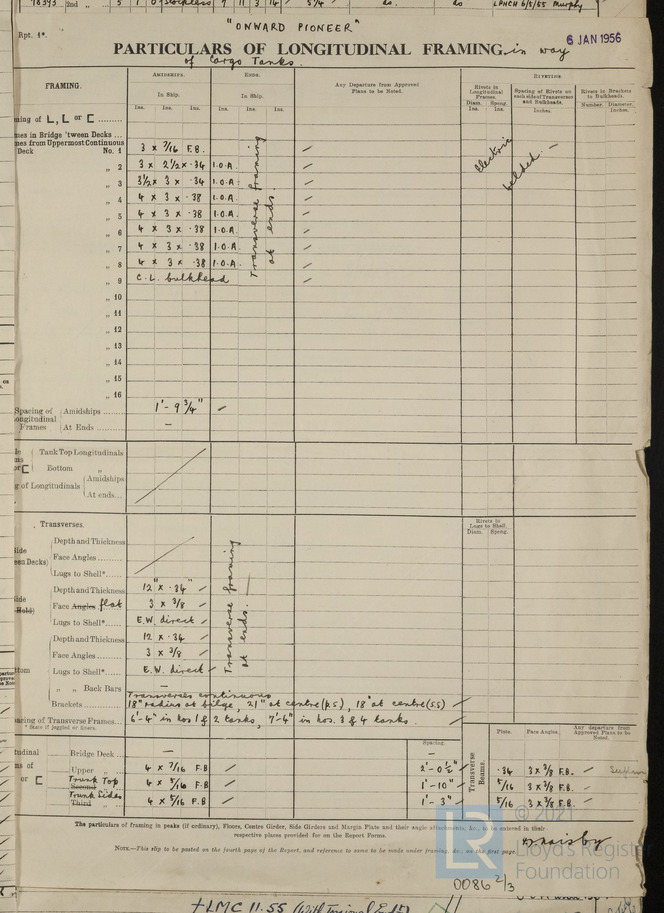 18393 2nd " 5 1 0 Stockless 7 11 3 14 5 1/4 do. do LPHCH 6/5/55 Murphy
"ONWARD PIONEER"
Rpt. 1*.
PARTICULARS OF LONGITUDINAL FRAMING in way
of Cargo Tanks.
6 JAN 1956
FRAMING.
AMIDSHIPS.
ENDS.
Any Departure from Approved Plans to be Noted.
RIVETING.
In Ship.
In Ship.
Rivets in Longitudinal Frames.
Spacing of Rivets on each side of Transverse and Bulkheads.
Rivets in Brackets to Bulkheads.
Ins. Ins. Ins. Ins. Ins. Ins.
Diam. Spcng. Inches. Number. Diameter.
Ins. Ins. Inches.
ming of L, L or [
mes in Bridge 'tween Decks ...
mes from Uppermost Continuous
Deck No. 1 3 x 7/16 F.B.
" 2 3 x 2½ x .34 I.O.A.
" 3 3½ x 3 x .34 I.O.A.
" 4 4 x 3 x .38 I.O.A.
" 5 4 x 3 x .38 I.O.A.
" 6 4 x 3 x .38 I.O.A.
" 7 4 x 3 x .38 I.O.A.
" 8 4 x 3 x .38 I.O.A.
" 9 C.L. bulkhead
" 10
" 11
" 12
" 13
" 14
" 15
" 16
Transverse framing
at ends.
Electric
welded. —
Spacing of Longitudinal Frames
Amidships ........ 1'- 9 3/4"
At Ends ........ —
Tank Top Longitudinals
Bottom "
g of Longitudinals
Amidships
At ends...
Transverses.
Rivets in Lugs to Shell.
Diam. Spcng.
ide
een Decks)
Depth and Thickness
Face Angles ..........
Lugs to Shell* ........
ide
Hold)
Depth and Thickness 12" x .34"
Face Angles flat 3 x 3/8
Lugs to Shell* ........ E.W. direct
Depth and Thickness 12 x .34
Face Angles .......... 3 x 3/8
ttom Lugs to Shell* ........ E.W. direct
" " Back Bars —
Transverse framing
at ends. —
Transverses continuous
Brackets ........ 18" radius at bilge, 21" at centre (P.S), 18" at centre (S.S)
pacing of Transverse Frames... 6'-4" in nos 1 & 2 tanks, 7'-4" in nos. 3 & 4 tanks.
* State if joggled or liners.
Spacing.
Plate. Face Angles. Any departure from Approved Plans to be Noted.
tudinal
ms of
or [
Bridge Deck ... — —
Upper " 4 x 7/16 F.B 2'-0½"
Trunk Top
Second 4 x 5/16 F.B 1'-10"
Trunk Sides
Third " 4 x 5/16 F.B 1'- 3"
Transverse Beams.
.34 3 x 3/8 F.B.
5/16 3 x 3/8 F.B.
5/16 3 x 3/8 F.B.
The particulars of framing in peaks (if ordinary), Floors, Centre Girder, Side Girders and Margin Plate and their angle attachments, &c., to be entered in their
respective places provided for on the Report Forms.
NOTE.—This slip to be posted on the fourth page of the Report, and reference to same to be made under framing, &c., on the first page.
© 2021
LR
Lloyd's Register
Foundation
0086 2/3
+LMC 11.55